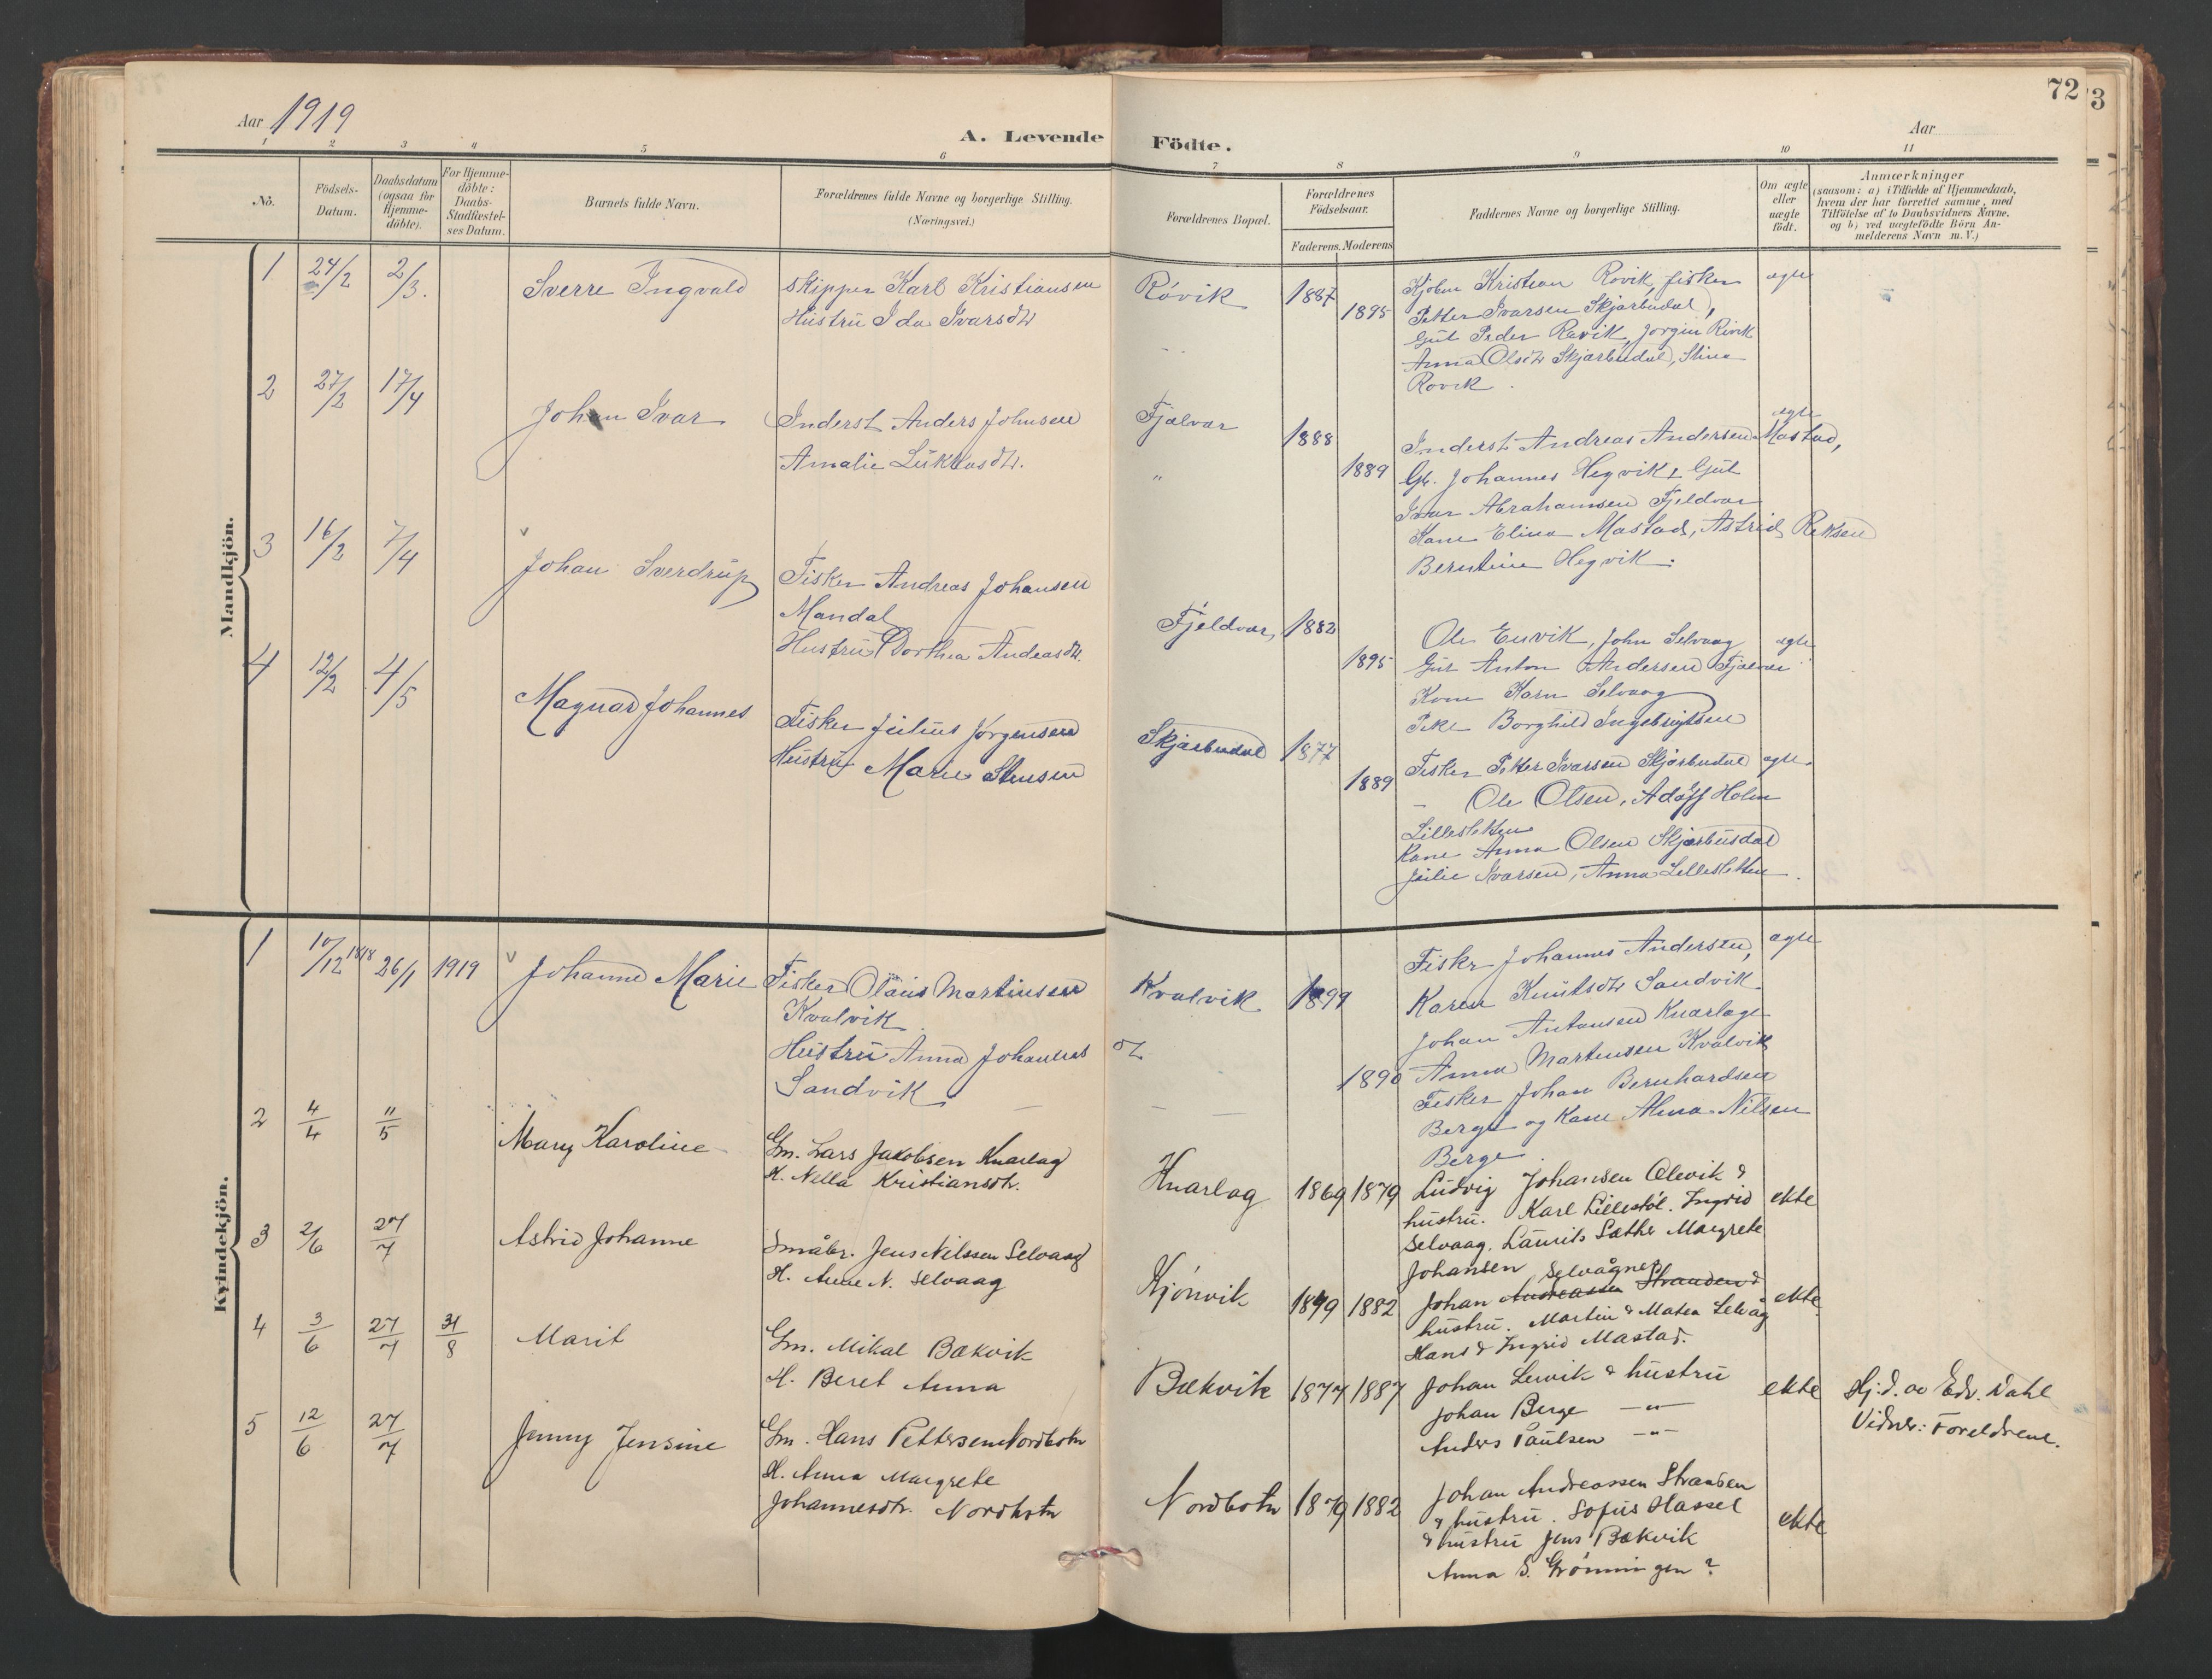 72
3
Aar 1919
A. Levende Födte.
Aar
1 2 3 4 5 6 7 8 9 10 11
Nö.
Födsels-
Datum.
Daabsdatum
(ogsaa för
Hjemme-
döbte).
For Hjemme-
döbte:
Daabs-
Stadfæstel-
ses Datum.
Barnets fulde Navn.
Forældrenes fulde Navne og borgerlige Stilling.
(Næringsvei.)
Forældrenes Bopæl.
Forældrenes
Födselsaar.
Faderens. Moderens
Faddernes Navne og borgerlige Stilling.
Om ægte
eller
uægte
födt.
Anmærkninger
(saasom: a) i Tilfælde af Hjemmedaab,
hvem der har forrettet samme, med
Tilföielse af to Daabsvidners Navne,
og b) ved uægtefödte Börn An-
melderens Navn m. V.)
Mandkjön.
1 24/2 2/3. Sverre Ingvald
Skipper Karl Kristiansen
Hustru Ida Ivarsdtr
Røvik 1887 1895
Kristian Rovik, fisker
Petter Ivarsen Skjærbudal,
Gut Peder Røvik, Jørgin Rivik
Anna Olsdtr Skjærbudal, Stina
Rovik.
ægte
2 27/2 17/4 Johan Ivar
Inderst Anders Johnsen
Amalie Lukasdtr.
Fjælvær 1888
" 1889
Inderst Andreas Andersen Mastad,
Gb. Johannes Hegvik, Gut
Ivar Abrahamsen Fjeldvær
Kone Elina Mastad, Astrid
Berntine Hegvik.
ægte
3 16/2 7/4 Johan Sverdrup
Fisker Andreas Johansen
Mandal
Hustru Dorthea Andreasdtr.
Fjeldvær, 1882 1895
Ole Envik, John Selvaag
Gut Anton Andersen Fjælvær
Kone Karn Selvaag
Pike Borghild Ingebrigtsen
ægte
4 12/2 4/5 Magnar Johannes
Fisker Julius Jørgensen
Hustru Marie Stensen
Skjærbudal 1877 1889
Fisker Petter Ivarsen Skjærbudal
- Ole Olsen, Adolf Holm
Lillesletten
Kone Anna Olsen Skjærbusdal
Julie Ivarsen, Anna Lillesletten.
ægte.
Kvindekjön.
1 10/12 1818 26/1 1919 Johanne Marie
Fisker Olaus Martinsen
Kvalvik.
Hustru Anna Johannes dtr
Sandvik
Kvalvik 1899
1890
Fisker Johannes Andersen,
Karen Knutsdtr Sandvik.
Johan Antonsen Knarlage
Anna Martinsen Kvalvik
Fisker Johan Bernhardsen
Berge og Kone Alma Nilsen
Berge.
ægte
2 4/4 11/5 Mary Karoline
Gm. Lars Jakobsen Knarlag
H. Nella Kristiansdtr.
Knarlag 1869 1879
Ludvig Johansen Olevik &
hustru. Karl Lillestøl. Ingrid
Selvaag. Laurits Sæther Margrete
Johansen
ekte
3 2/6 27/7 Astrid Johanne
Småbr. Jens Nilssen Selvaag
H. Anne N. Selvaag
Kjønvik 1882
Selvågnes
Johan Andreassen Stranden &
hustru. Martin & Maten Selvåg
Hans & Ingrid Mastad.
ekte
4 3/6 27/7 31/8 Marit
Gm. Mikal Bækvik
H. Beret Anna
Bækvik 1877 1887
Johan Lervik & hustru
Johan Berge - " -
Anders Paulsen - " -
ekte
Hj.d. av Edv. Dahl
Vidner: Foreldrene.
5 12/6 27/7 Jenny Jensine
Gm. Hans Pettersen Nordbotn
H. Anna Margrete
Johannesdtr. Nordbotn
Nordbotn 1879 1882
Johan Andreassen Stranden
& hustru. Sofus Hassel
& hustru Jens Bækvik
Anna S. Grønningen?
ekte